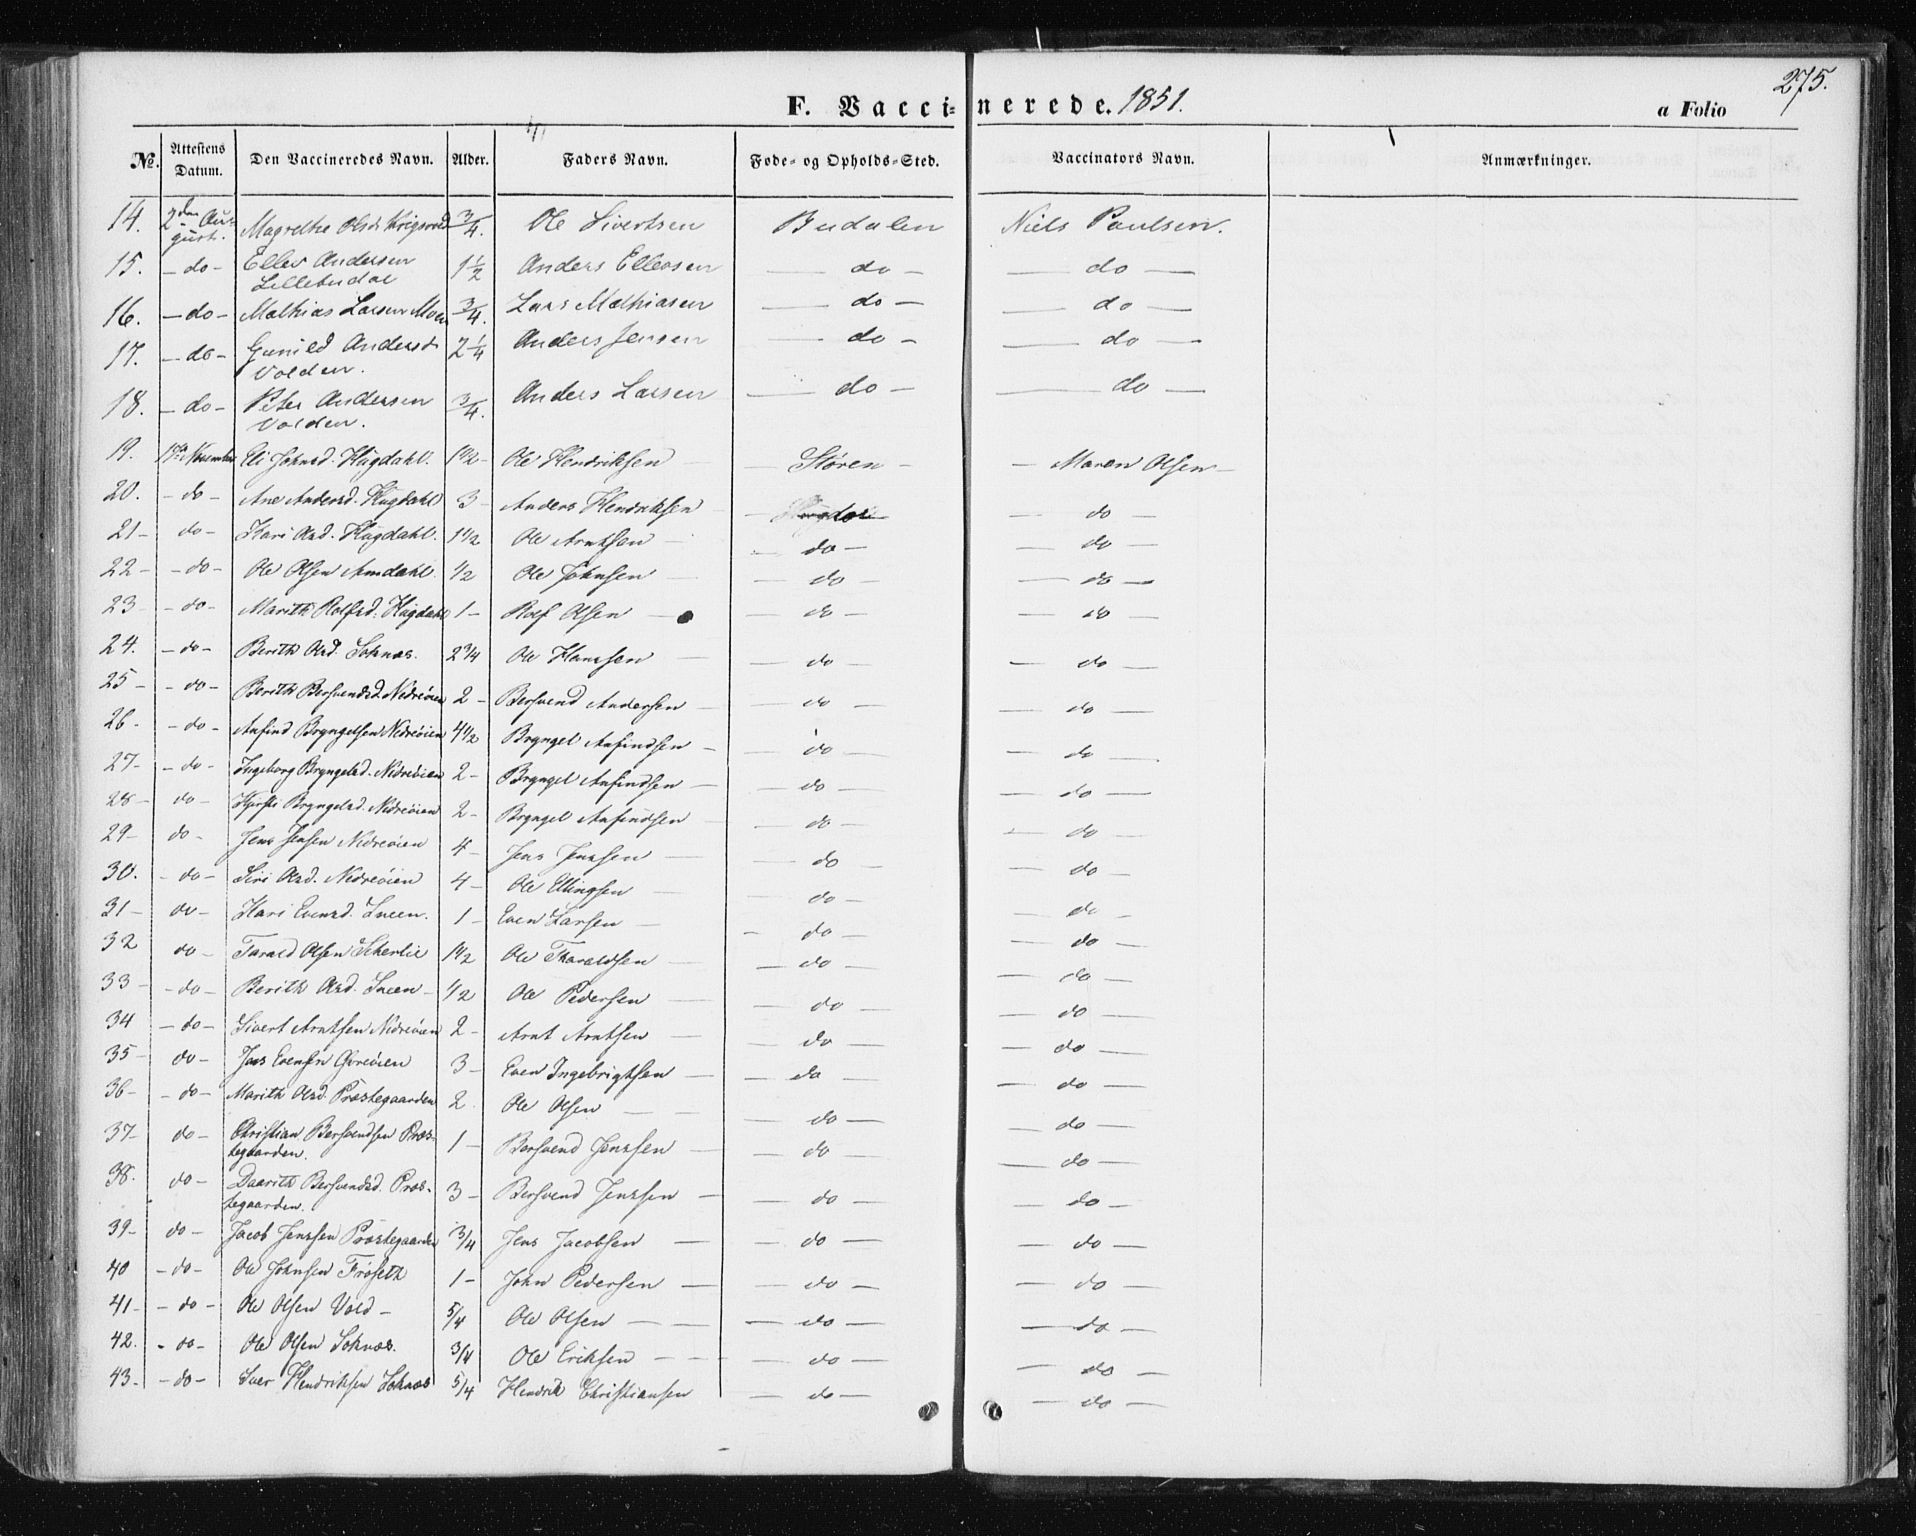 275.
F. Vaccinerede. 1851.
a Folio
No. Attestens Datum. Den Vaccineredes Navn. Alder. Faders Navn. Føde- og Opholds-Sted. Vaccinators Navn. Anmærkninger.
14. 2den August. Magrethe Olsd. 3/4. Ole Sivertsen Budalen Niels Paulsen.
15. - do - Ellev Andersen Lillebudal 1 1/2 Anders Ellevsen - do - - do -
16. - do - Mathias Larsen Moen 3/4. Lars Mathiasen - do - - do -
17. - do - Gunild Andersd Volden. 2 1/4 Anders Jensen - do - - do -
18. - do - Peter Andersen Volden. 3/4. Anders Larsen - do - - do -
19. November Eli Johnsd. Hugdahl. 1 1/2 - Ole Hendriksen - Støren - - Maren Olsen -
20. - do - Ane Andersd. Hugdahl 3 - Anders Hendriksen - do - do -
21 - do - Kari Olsd. Hugdahl. 1 1/2 Ole Arntsen - - do - - do -
22 - - do - Ole Olsen Amdahl 1/2 Ole Johnsen - - do - - do -
23 - do - Marith Rolfsd. Hugdahl 1 - Rolf Olsen - - do - - do -
24. - do - Berith Olsd. Soknæs. 2 3/4 Ole Hanssen - - do - - do -
25 - - do - Berith Bersvendsd. Nedreøien 2 - Bersvend Andersen - - do - - do -
26 - - do - Anfind Bryngelsen Nedreøien 4 1/2 Bryngel Anfindsen - - do - - do -
27 - - do - Ingeborg Bryngelsd. Nedreøien 2 - Bryngel Anfindsen - - do - - do -
28 - do - Kjersti Bryngelsd. Nedreøien 2 - Bryngel Anfindsen - - do - - do -
29 - do - Jens Jensen Nedreøien 4 - Jens Jenssen - - do - - do -
30. - do - Siri Olsd. Nedreøien 4 - Ole Ellingsen - - do - - do -
31 - do - Kari Evensd. 1 - Even Larsen - - do - - do -
32 do - Tarald Olsen 1 1/2 Ole Tharaldsen - - do - - do -
33 - - do - Berith Olsd. 1/2 Ole Pedersen - - do - - do -
34 - do - Sivert Arntsen Nedreøien 2 - Arnt Arntsen - - do - - do -
35 - do - Evensen Øvreøien 3 - Even Ingebrigtsen - - do - - do -
36 - - do - Marith Olsd. Præstegaarden 2 Ole Olsen - - do - - do -
37 - do - Christian Bersvendsen Præstegaarden. 1 - Bersvend Jenssen - - do - - do -
38. do - Bersvendsd. Præstegaarden. 3 - Bersvend Jenssen - - do - - do -
39 - do - Jacob Jenssen Præstegaarden 3/4 Jens Jacobsen - - do - - do -
40 - do - Ole Johnsen Frøseth 1 - John Pedersen - - do - - do -
41 - - do - Ole Olsen Vold - 5/4 Ole Olsen - - do - - do -
42. - do - Ole Olsen Soknæs. 3/4 Ole Eriksen - - do - - do -
43. - do - Iver Hendriksen Soknæs 5/4 Hendrik Christiansen - do - - do -